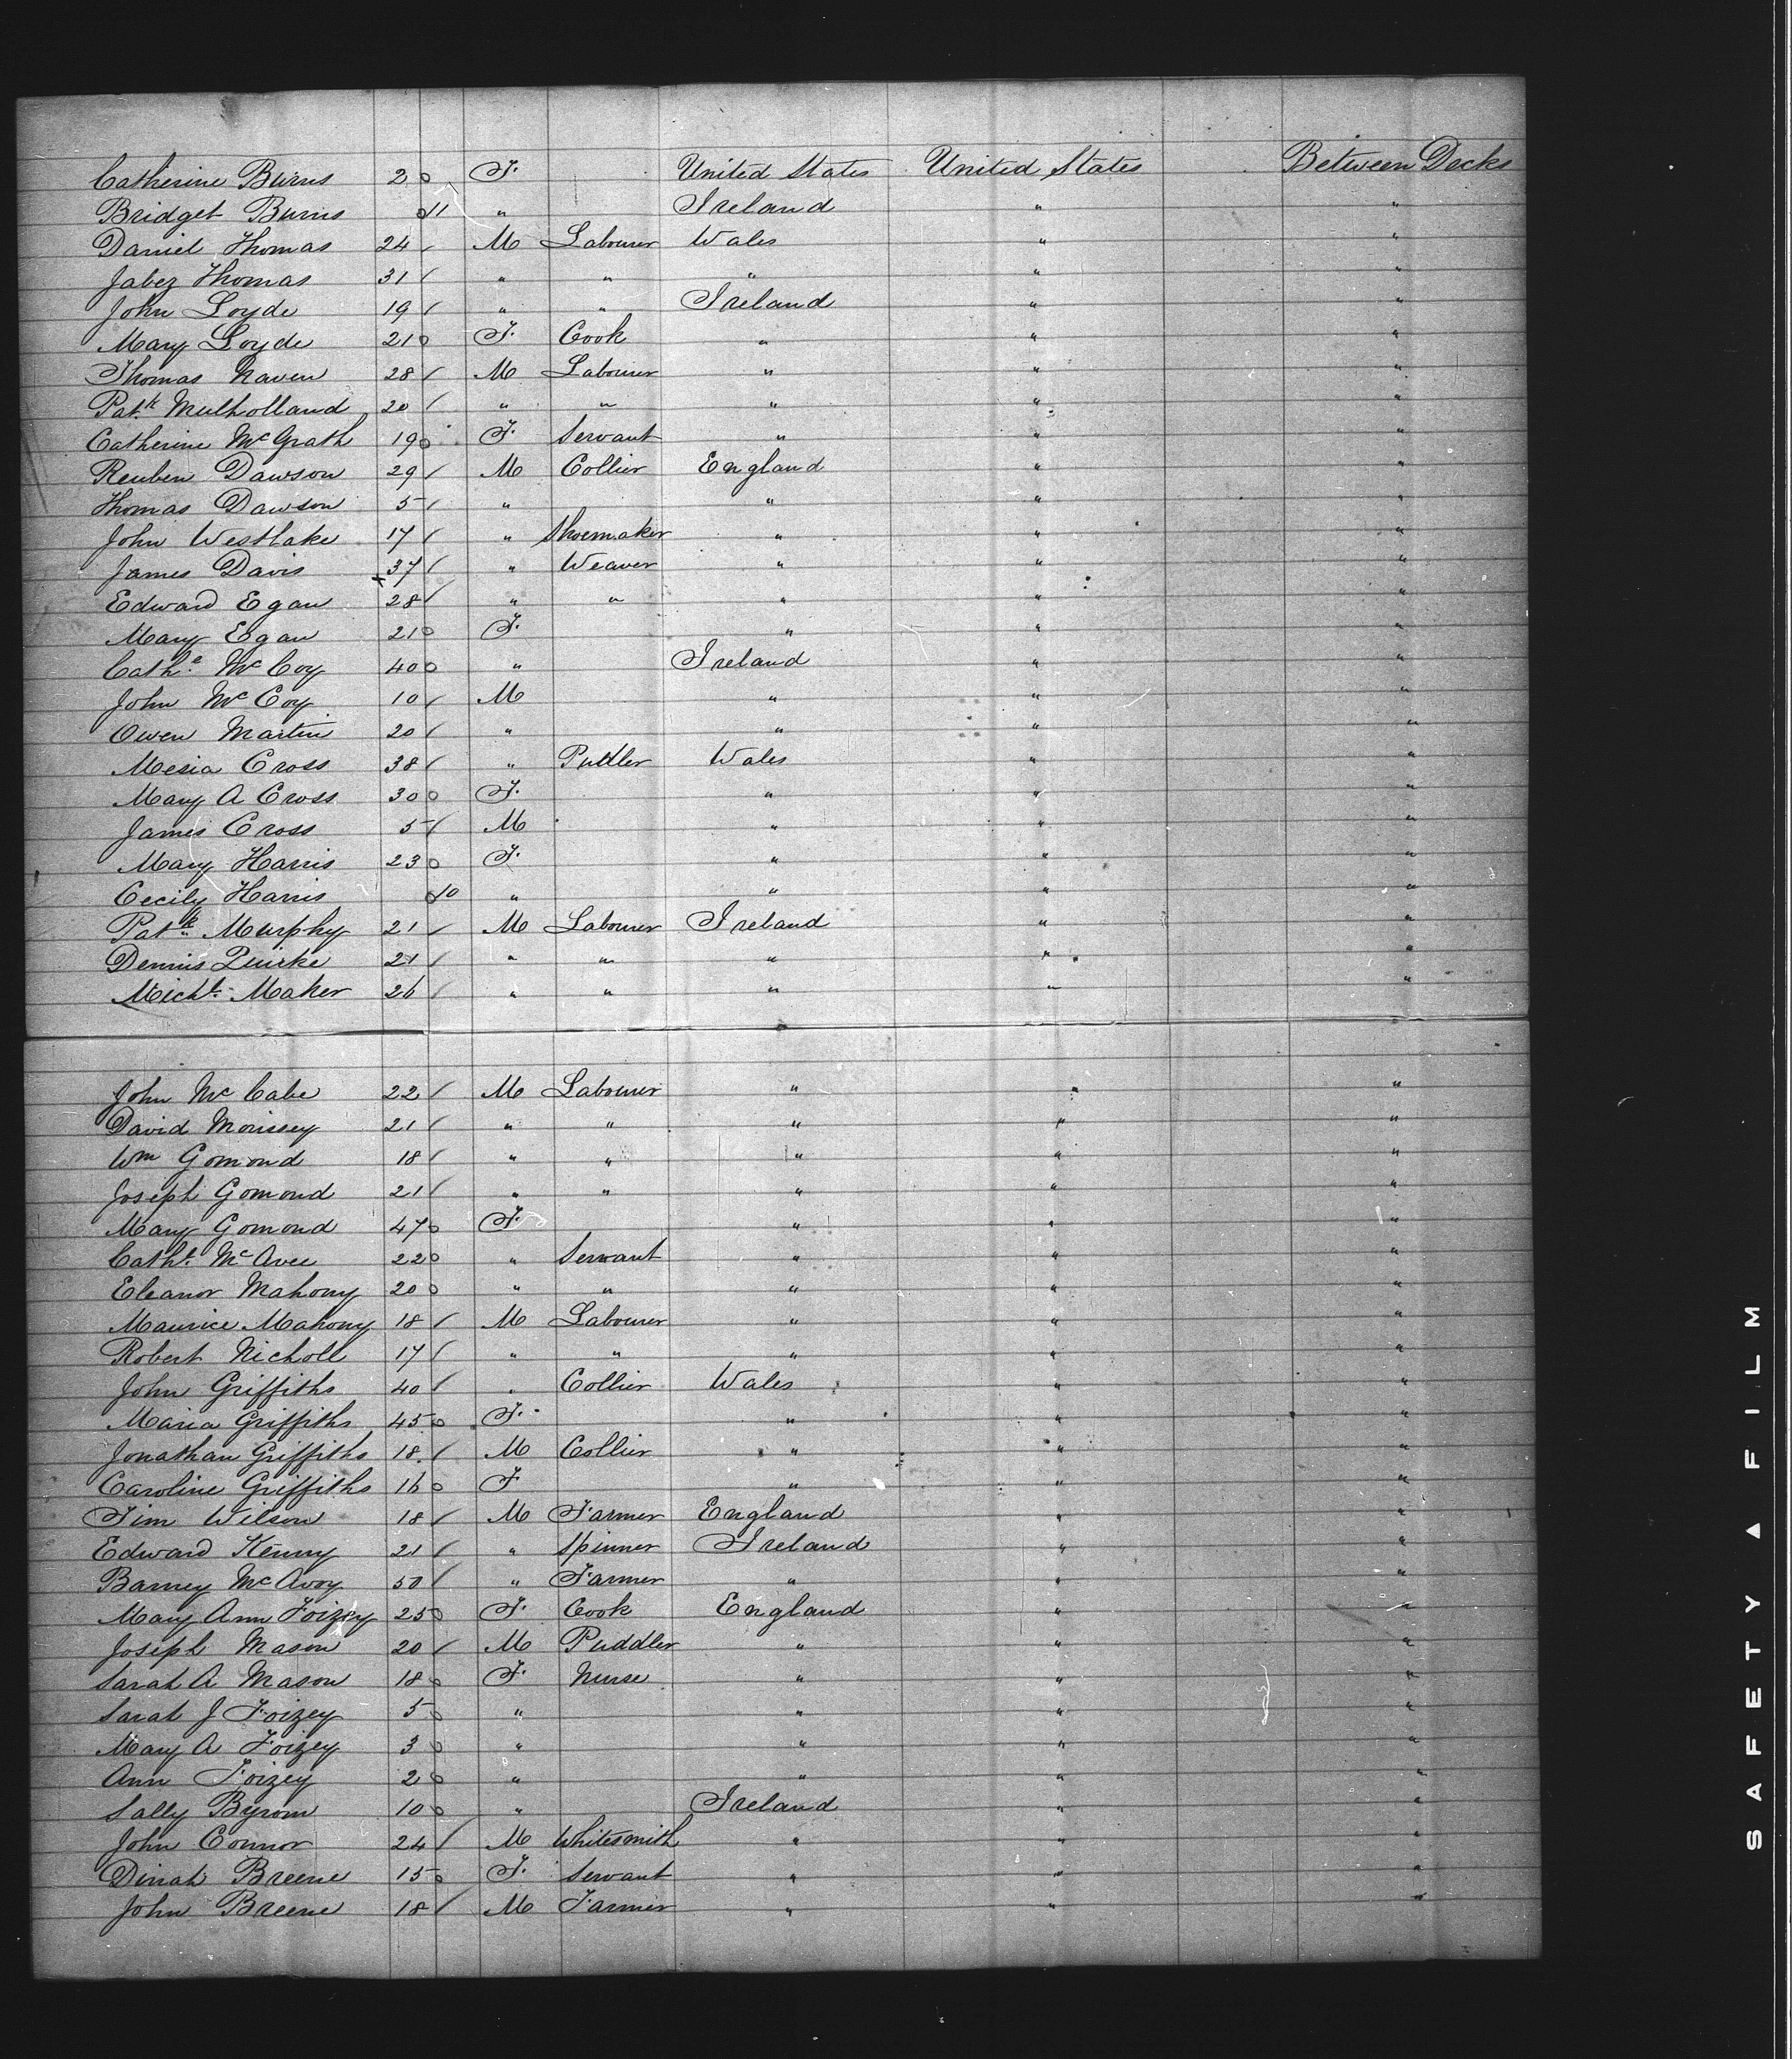 Catherine Burns 2 0 F. United States United States Between Decks
Bridget Burns 0/11 " Ireland " "
Daniel Thomas 24 / M Labourer Wales " "
Jabez Thomas 31 / " " " " "
John Loyde 19 / " " Ireland " "
Mary Loyde 21 0 F. Cook " " "
Thomas Naven 28 / M Labourer " " "
Patk Mulholland 20 / " " " " "
Catherine McGrath 19 0 F. Servant " " "
Reuben Dawson 29 / M Collier England " "
Thomas Dawson 5 / " " " "
John Westlake 17 / " Shoemaker " " "
James Davis x 37 / " Weaver " " "
Edward Egan 28 / " " " " "
Mary Egan 21 0 F. " " "
Cathe McCoy 40 0 " Ireland " "
John McCoy 10 / M " " "
Owen Martin 20 / " " " "
Mesia Cross 38 / " Pudler Wales " "
Mary A Cross 30 0 F. " " "
James Cross 5 / M " " "
Mary Harris 23 0 F. " " "
Cecily Harris 0/10 " " " "
Patk Murphy 21 / M Labourer Ireland " "
Dennis Quirke 21 / " " " " "
Michl Maher 26 / " " " " "
John McCabe 22 / M Labourer " " "
David Morissey 21 / " " " " "
Wm Gomond 18 / " " " " "
Joseph Gomond 21 / " " " " "
Mary Gomond 47 0 F. " " "
Cathe McAvee 22 0 " Servant " " "
Eleanor Mahony 20 0 " " " " "
Maurice Mahony 18 / M Labourer " " "
Robert Nicholl 17 / " " " " "
John Griffiths 40 / " Collier Wales " "
Maria Griffiths 45 0 F. " " "
Jonathan Griffiths 18 / M Collier " " "
Caroline Griffiths 16 0 F " " "
Tim Wilson 18 / M Farmer England " "
Edward Kenny 21 / " Spinner Ireland " "
Barney McAvoy 50 / " Farmer " " "
Mary Ann Foizey 25 0 F. Cook England " "
Joseph Mason 20 / M Puddler " " "
Sarah A Mason 18 0 F. Nurse " " "
Sarah J Foizey 5 0 " " " "
Mary A Foizey 3 0 " " " "
Ann Foizey 2 0 " " " "
Sally Byrom 10 0 " Ireland " "
John Connor 24 / M Whitesmith " " "
Dinah Breene 15 0 F. Servant " " "
John Breene 18 / M Farmer " " "
SAFETY ▲ FILM